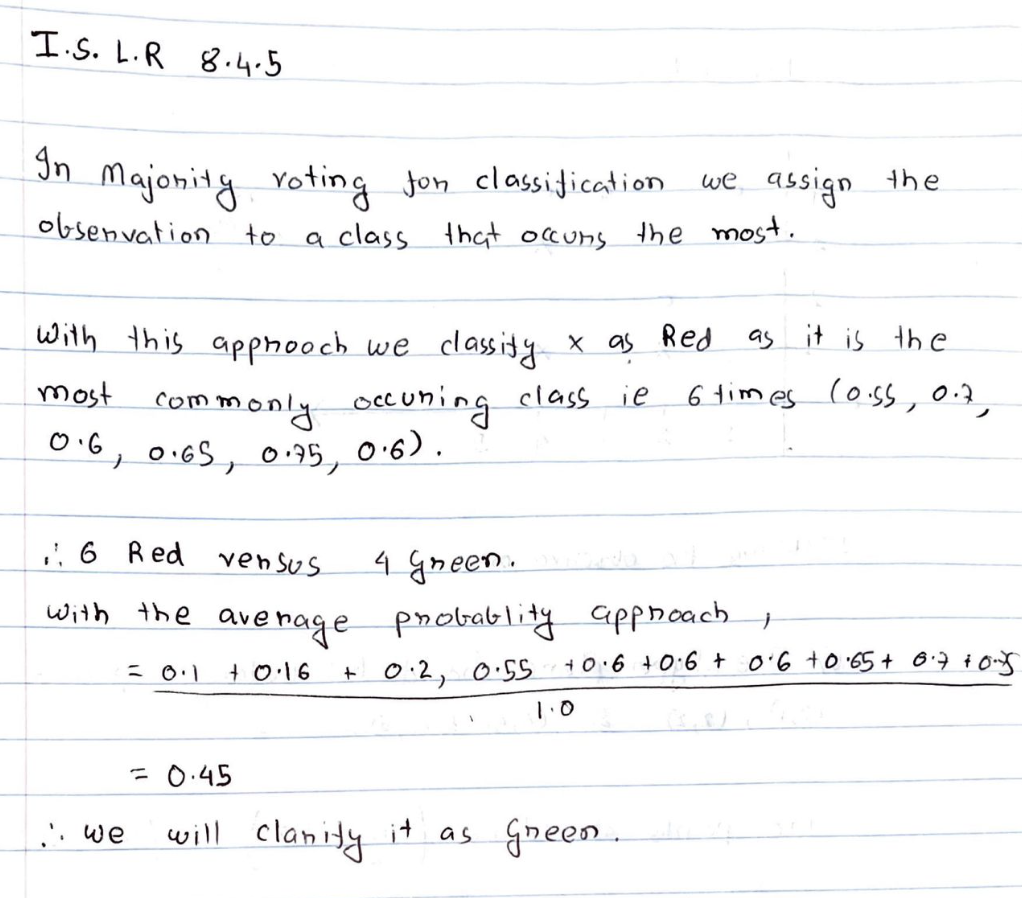 I.S. L.R 8.4.5
In Majority voting for classification we assign the
observation to a class that occurs the most.
With this approoch we classify x as Red as it is the
most commonly occuring class ie 6 times (0.55, 0.7,
0.6, 0.65, 0.75, 0.6).
∴ 6 Red versus 4 Green.
With the average probablity approach,
= 0.1 + 0.16 + 0.2, 0.55 + 0.6 + 0.6 + 0.6 + 0.65 + 0.7 + 0.75
1.0
= 0.45
∴ we will clarify it as Green.